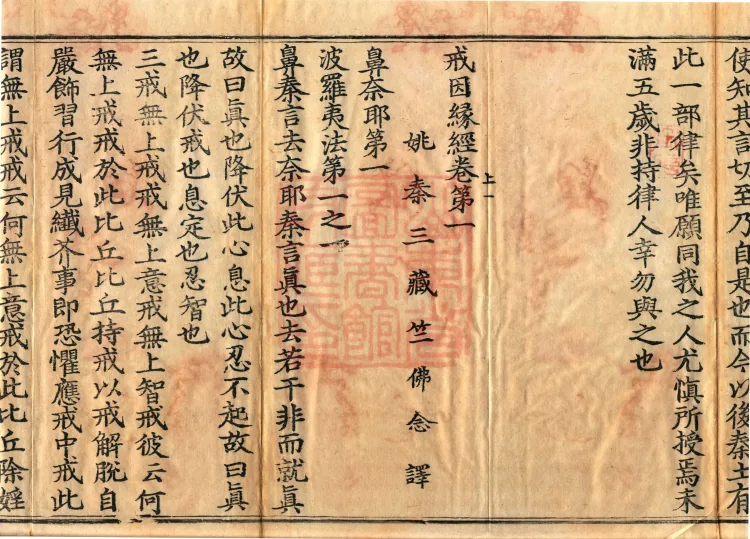 使知其言切至乃自是也而今以後秦土有
此一部律矣唯願同我之人尤慎所授焉未
滿五歲非持律人幸勿與之也
戒因緣經卷第一 上一
姚秦三藏竺佛念譯
鼻奈耶第一
波羅夷法第一之一
鼻秦言去奈耶秦言眞也去若干非而就眞
故曰眞也降伏此心息此心忍不起故曰眞
也降伏戒也息定也忍智也
三戒無上戒戒無上意戒無上智戒彼云何
無上戒戒於此比丘比丘持戒以戒解脫自
嚴飾習行成見纎芥事即恐懼應戒中戒此
謂無上戒戒云何無上意戒於此比丘除婬